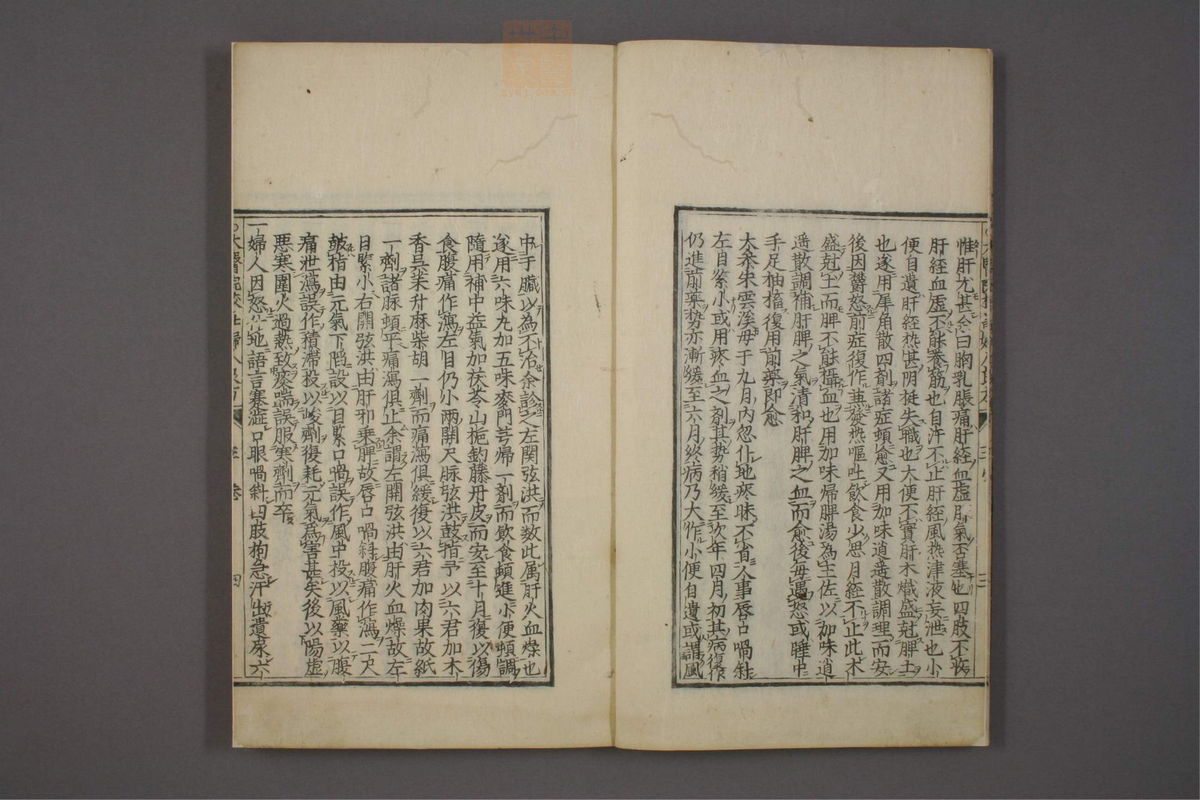 惟肝尤甚余曰胸乳脹痛肝経血虚肝氣否塞也四肢不
肝経血虚不能養筋也自汗不止肝経風热津液妄泄也小
便自遺肝経热甚阴挺失職也大便不實肝木熾盛尅脾土
也遂用犀角散四劑諸症頓愈又用加味逍遥散調理而安
後因欝怒前症復作兼發热嘔吐飲食少思月經不止此木
盛尅土而脾不能攝血也用加味帰脾湯為主佐以加味逍
遥散調補肝脾之氣清和肝脾之血而愈後毎遇怒或睡中
手足抽搐復用前藥即愈
太奉朱雲溪母于九月内忽仆地痰昧不省人事唇口喎斜
左目紧小或用痰血之剤其势稍緩至次年四月初其病復作
仍進前藥势亦漸緩至六月终病乃大作小便自遺或謂風
中于臓以為不治余診之左関弦洪而数此属肝火血燥也
遂用六味丸加五味麥門芎帰一剤而飲食頓進小便頓調
隨用補中益氣加茯苓山梔釣藤丹皮而安至十月復以傷
食腹痛作瀉左目仍小兩関尺脉弦洪鼓指予以六君加木
香呉茱升麻柴胡一劑而痛瀉俱緩復以六君加肉果故紙
一劑諸脉頓平痛瀉俱止余謂左関弦洪由肝火血燥故左
目緊小右関弦洪由肝邪乗脾故唇口喎斜腹痛作瀉二尺
皷指由元氣下陷設以目緊口喎誤作風中投以風藥以腹
痛泄瀉誤作積滞投以峻劑復耗元氣為害甚矣後以陽虚
悪寒圍火過熱致痰喘誤服寒劑而卒
一婦人因怒仆地語言蹇澁口眼喎斜四肢拘急汗出遺尿六